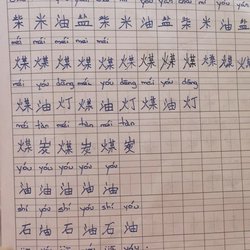 柴 米 油 盐 柴 米 油 盐 柴 米
méi méi méi méi
煤 煤 煤 煤 煤 煤
méi yóu dēng méi yóu dēng méi yóu
煤 油 灯 煤 油 灯 煤 油 灯
méi tàn méi tàn méi
煤 炭 煤 炭 煤 炭
yóu yóu yóu yóu yóu
油 油 油 油 油
shí yóu shí yóu shí yóu
石 油 石 油 石 油
yóu yóu